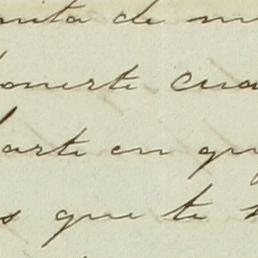 nita de m
ponerte cua
darte en qu
s que te